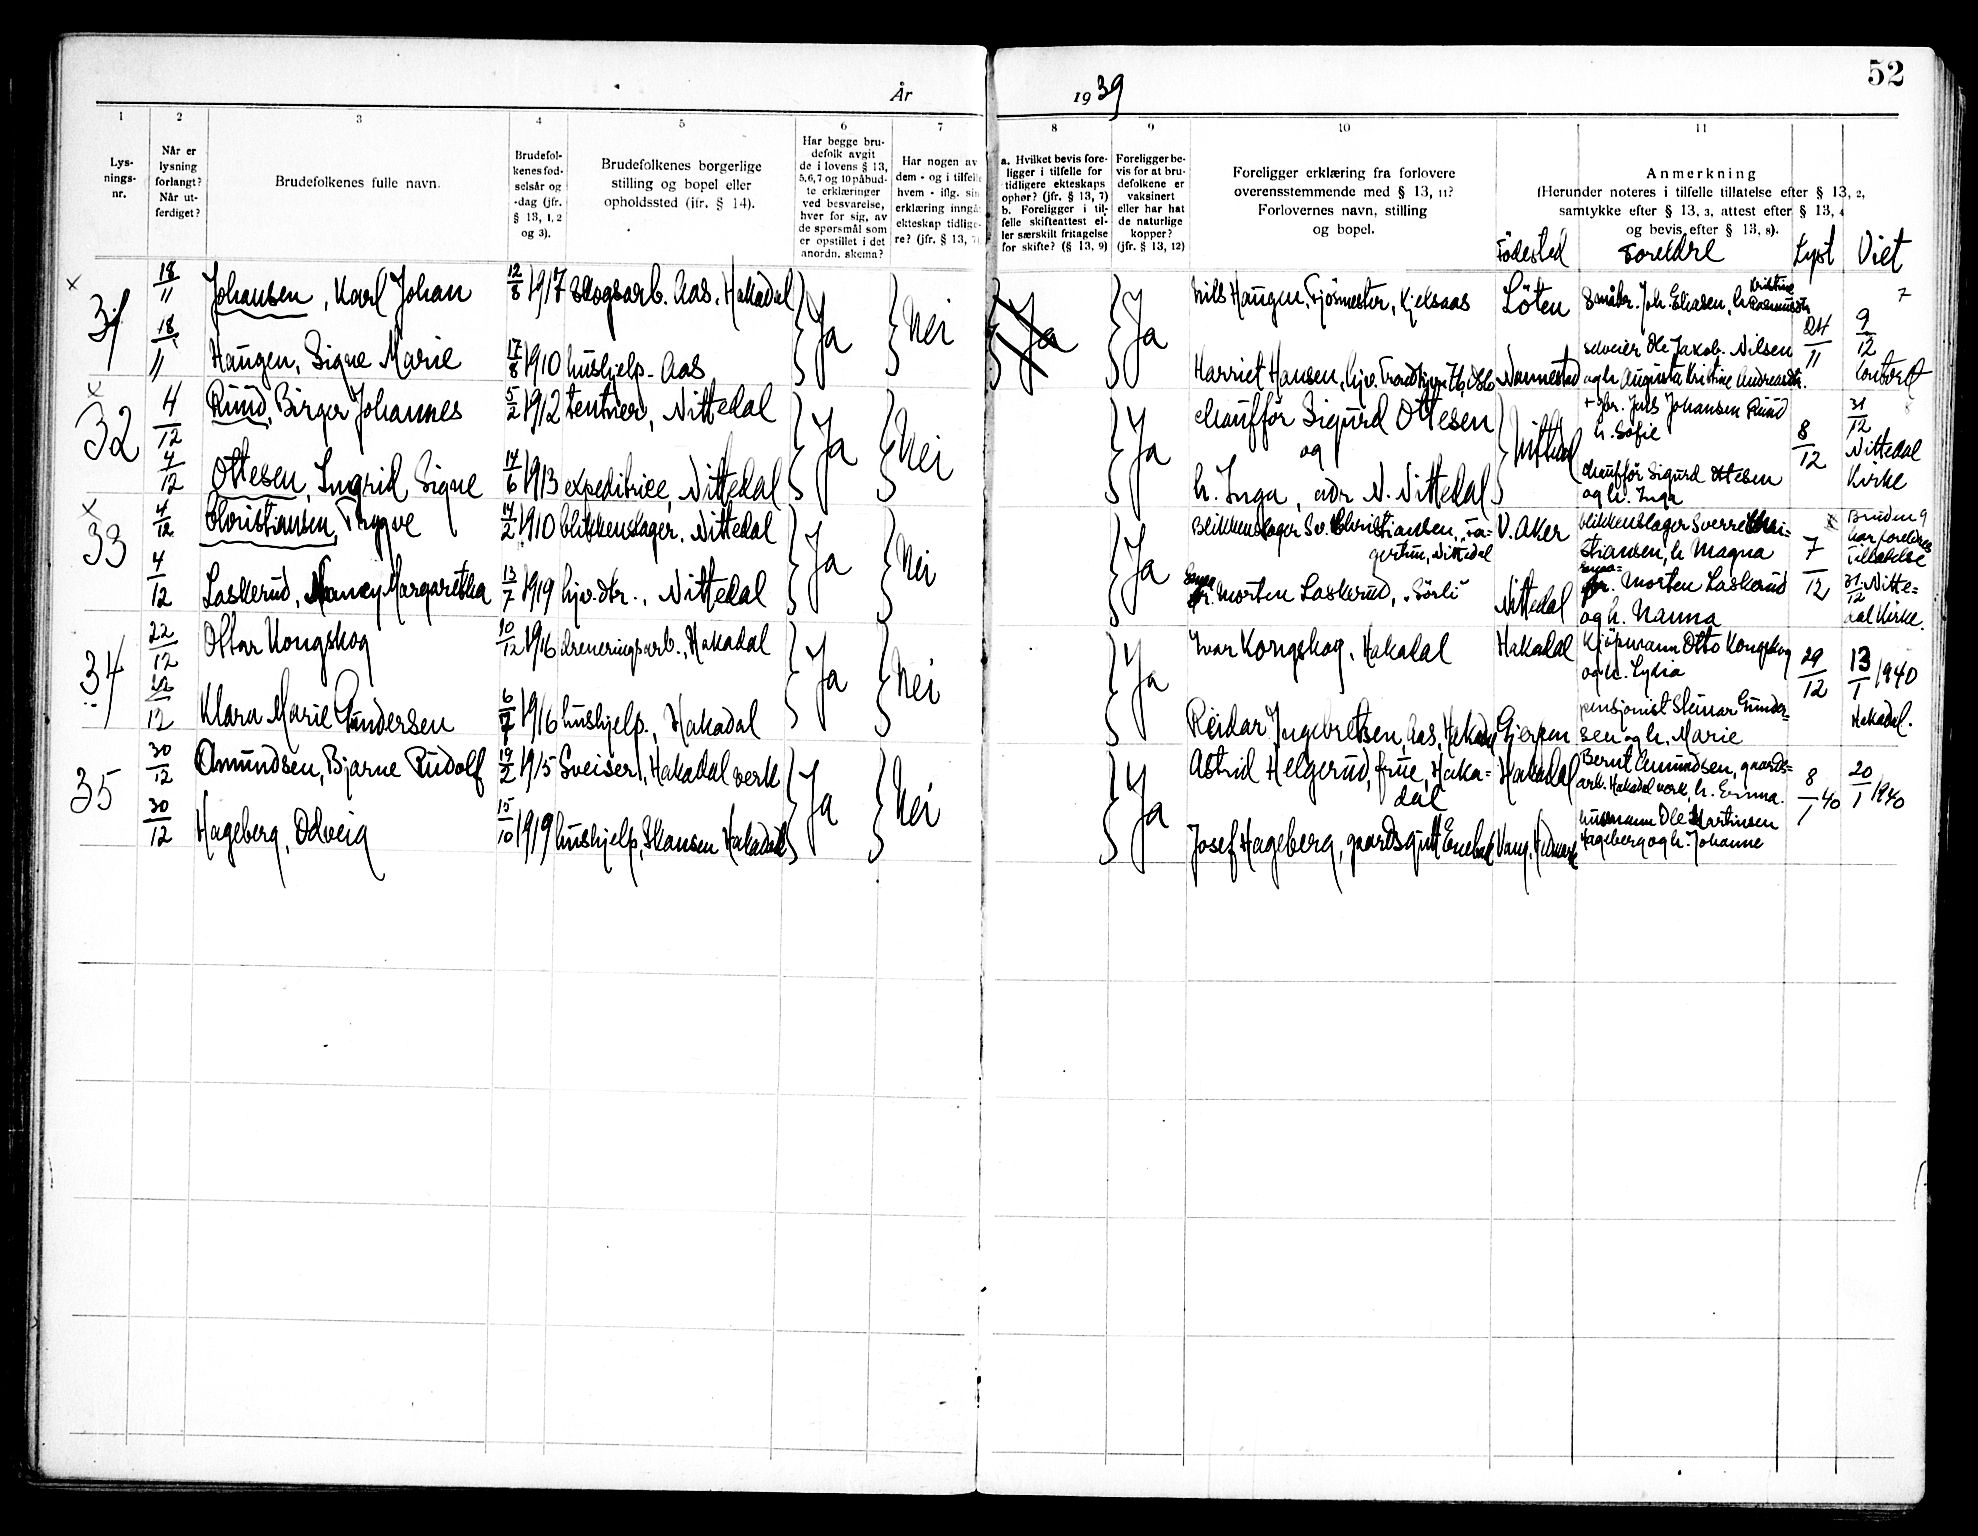 52
År 1939
1
2
3
4
5
6
7
8
9
10
11
Lys-
nings-
nr.
Når er
lysning
forlangt?
Når ut-
ferdiget?
Brudefolkenes fulle navn.
Brudefol-
kenes fød-
selsår og
-dag (jfr.
§ 13, 1, 2
og 3).
Brudefolkenes borgerlige
stilling og bopel eller
opholdssted (jfr. § 14).
Har begge bru-
defolk avgit
de i lovens § 13,
5,6,7 og 10 påbud-
te erklæringer
ved besvarelse,
hver for sig, av
de spørsmål som
er opstillet i det
anordn. skema?
Har nogen av
dem - og i tilfelle
hvem - iflg. sin
erklæring inngå
ekteskap tidlige-
re? (jfr. § 13, 7).
a. Hvilket bevis fore-
ligger i tilfelle for
tidligere ekteskaps
ophør? (jfr. § 13, 7)
b. Foreligger i til-
felle skifteattest el-
ler særskilt fritagelse
for skifte? (§ 13, 9)
Foreligger be-
vis for at bru-
defolkene er
vaksinert
eller har hat
de naturlige
kopper?
(jfr. § 13, 12)
Foreligger erklæring fra forlovere
overensstemmende med § 13, 11?
Forlovernes navn, stilling
og bopel.
Anmerkning
(Herunder noteres i tilfelle tillatelse efter § 13, 2,
samtykke efter § 13, 3, attest efter § 13, 4
og bevis efter § 13, 8).
Födested Foreldre Lyst Viet
x
31 18/11 Johansen, Karl Johan 12/8 1917 skogsarb. Aas, Hakadal Ja Nei Ja Ja Nils Haugen, Fjösmester, Kjelsaas Löten Småbr. Joh. Eliasen, h. Kristine Rasmusdtr. 24/11 9/12
18/11 Haugen, Signe Marie 17/8 1910 hushjelp - Aas Harriet Hansen, Oslo Nannestad selveier Ole Jakob. Nilsen
og h. Augusta Kristine Andreasdtr.
x
32 4/12 Ruud, Birger Johannes 5/2 1912 Nittedal Ja Nei Ja chaufför Sigurd Ottesen Nittedal Juls Johansen Ruud
h. Sofie 8/12 31/12
og Nittedal
Kirke
4/12 Ottesen, Ingrid Signe 14/6 1913 expeditrice, Nittedal h. Inga, adr N. Nittedal chaufför Sigurd Ottesen
og h. Inga
x
33 4/12 Christiansen, Trygve 14/2 1910 blikkenslager, Nittedal Ja Nei Ja Blikkenslager Sv. Christiansen,
Nittedal V. Aker blikkenslager Sverre Chri-
stiansen, h Magna x 7/12 Bruden
har foreldres
tillatelse
4/12 Laskerud, Nancy Margaretha 13/7 1919 hjv. dtr., Nittedal Morten Laskerud, Sörli Nittedal Morten Laskerud
og h. Nanna 31/12 Nitte-
dal Kirke.
34 22/12 Ottar Kongskog 10/12 1916 dreneringsarb., Hakadal Ja Nei Ja Ivar Kongskog, Hakadal Hakadal Kjöpmann Otto Kongskog
og h. Lydia 29/12 13/1 1940
22/12 Klara Marie Gundersen 1916 hushjelp, Hakadal Reidar Ingebretsen, Aas, Hakadal Gjerpen pensjonist Steinar Gunder-
sen og h. Marie Hakadal.
35 30/12 Amundsen, Bjarne Rudolf 19/2 1915 Sveiser, Hakadal verk Ja Nei Ja Astrid Helgerud, frue, Haka-
dal Hakadal Bernt Amundsen, gaards-
arb. Hakadal verk, h. Emma. 8/1 40 20/1 1940
30/12 Hageberg, Odveig 15/10 1919 hushjelp, Skansen Hakadal Josef Hageberg, gaardsgutt Enebak Vang, Hedmark husmann Ole Martinsen
Hageberg og h. Johanne